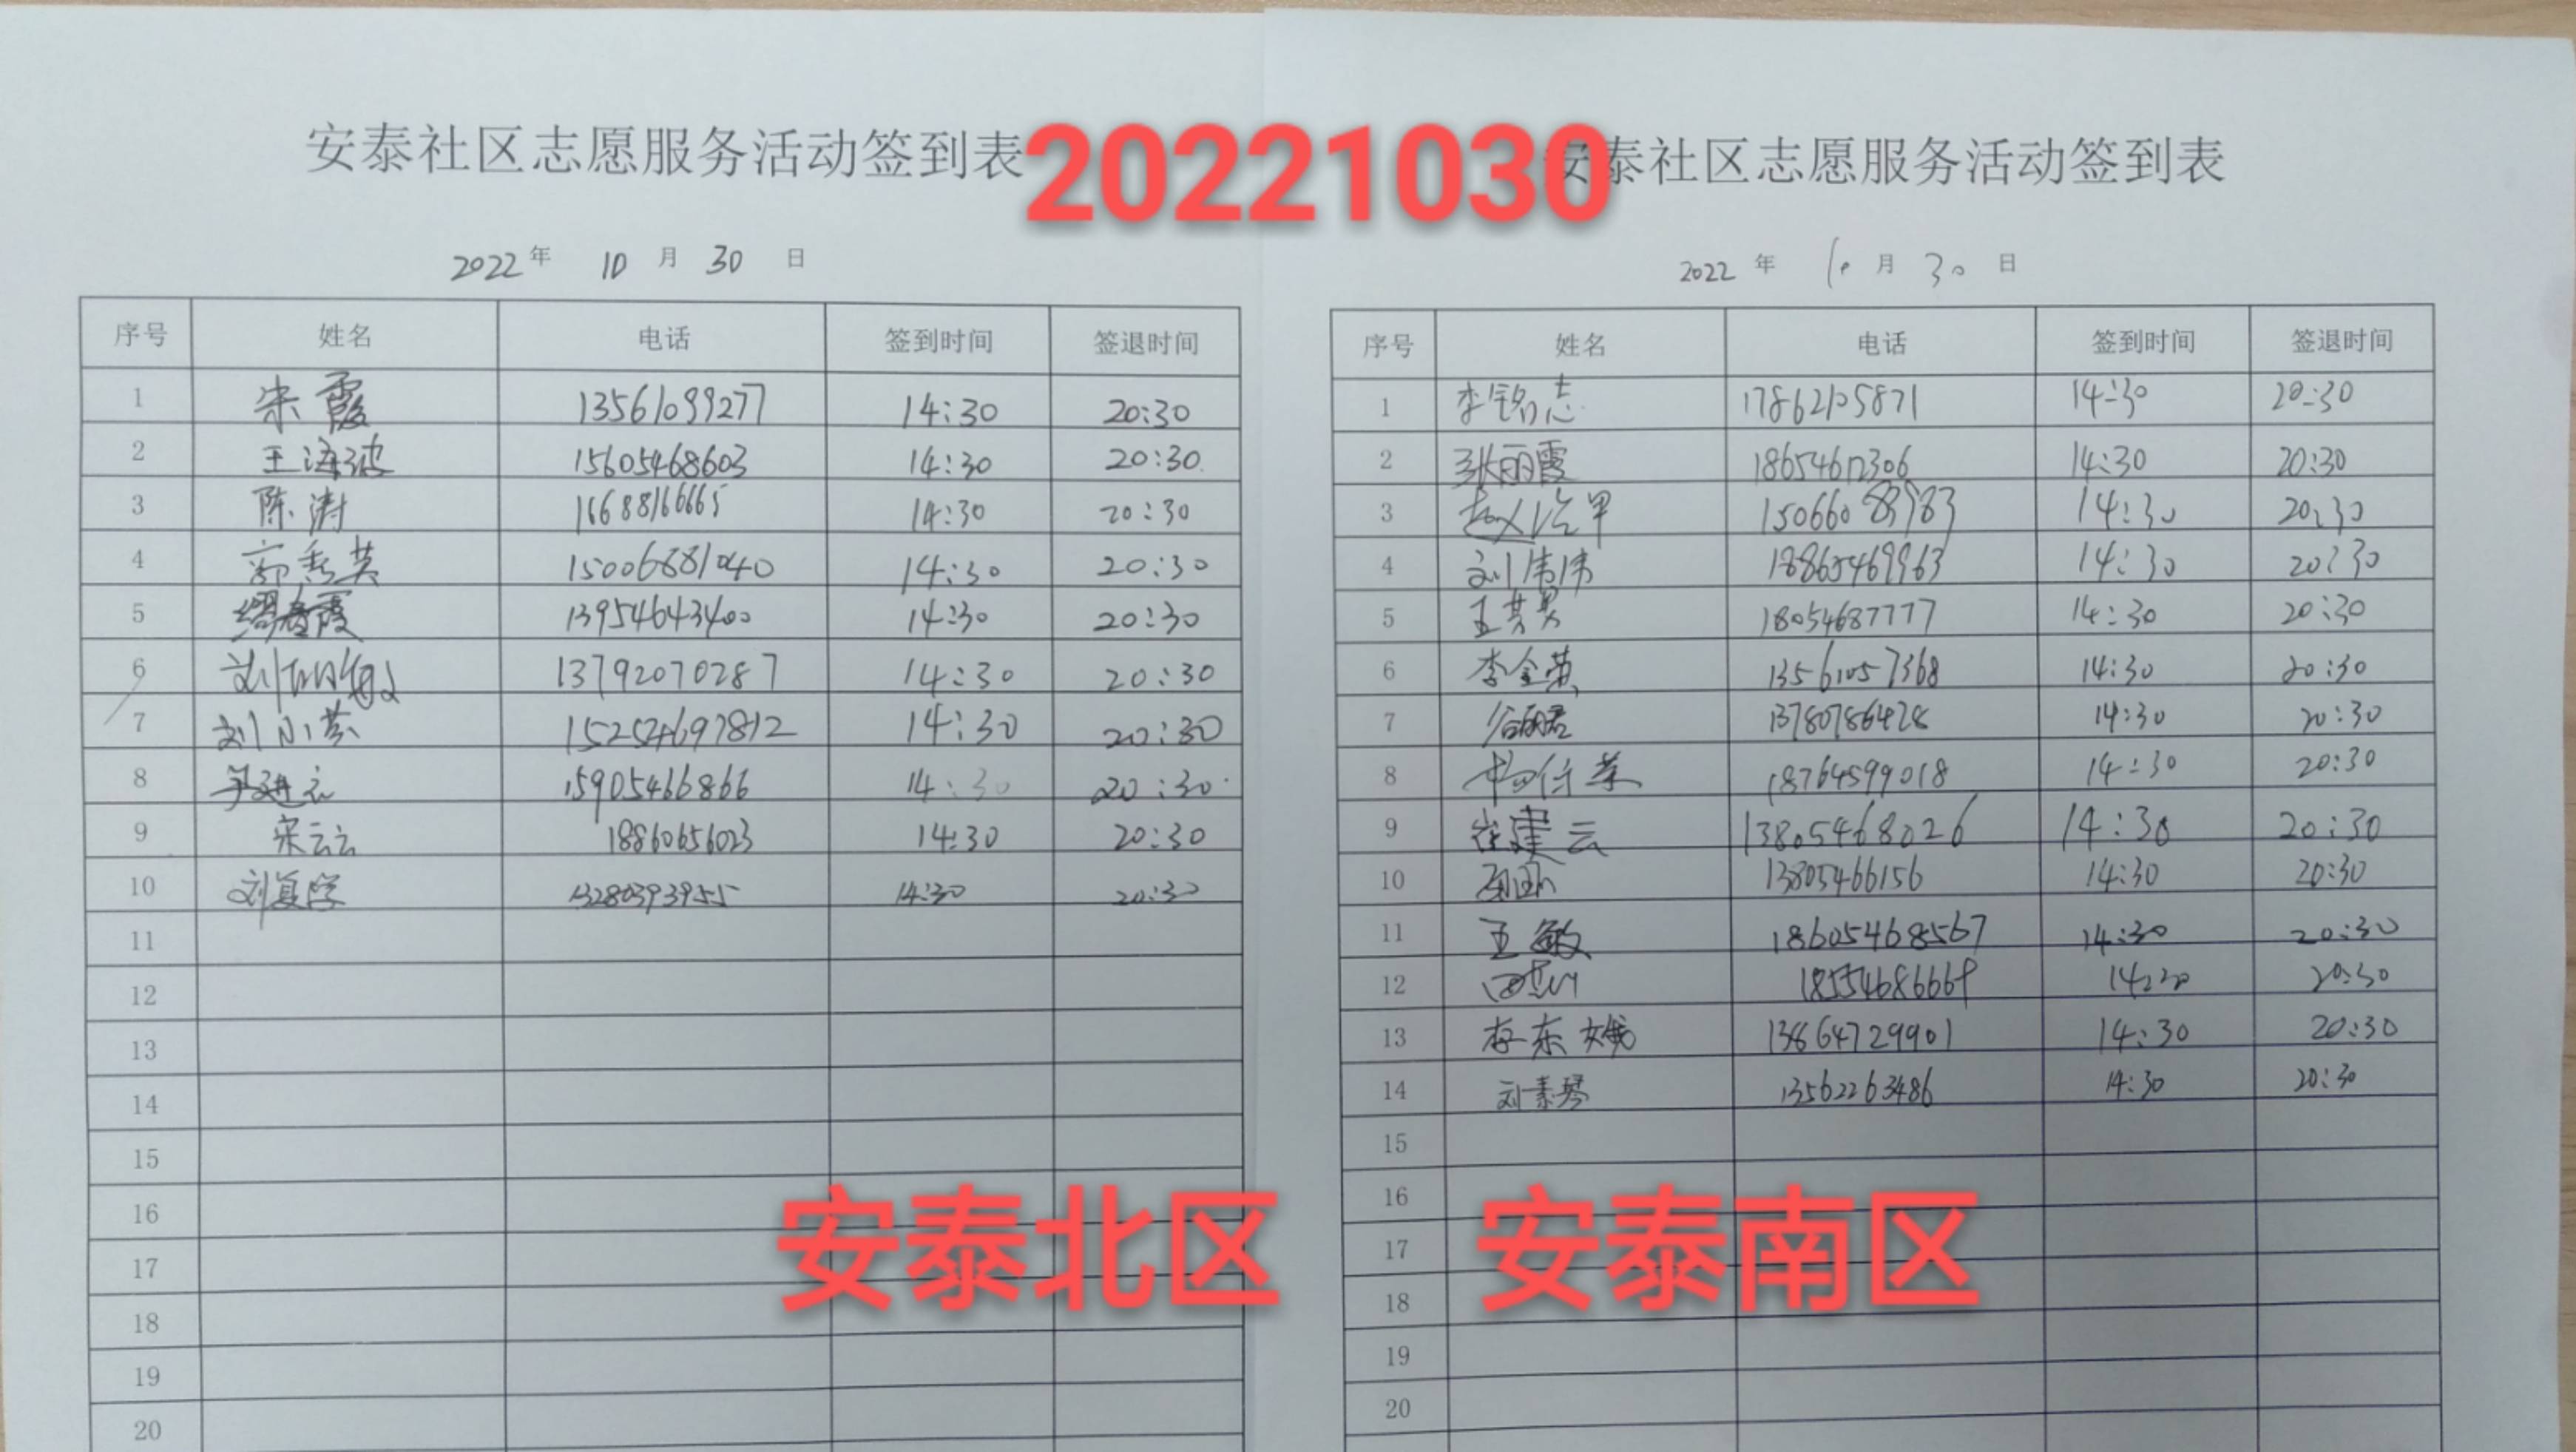 安泰社区志愿服务活动签到表
20221030
安泰社区志愿服务活动签到表
2022年 10月30日
序号 姓名 电话 签到时间 签退时间
1 宋霞 13561099277 14:30 20:30
2 王海波 15605468603 14:30 20:30
3 陈涛 16688166665 14:30 20:30
4 郭秀英 15006881040 14:30 20:30
5 缪春霞 13954643400 14:30 20:30
6 13792070287 14:30 20:30
7 刘小芬 15254697812 14:30 20:30
8 尹建云 15905466866 14:30 20:30
9 宋云云 18860656023 14:30 20:30
10 刘复学 13280393955 14:30 20:30
11
12
13
14
15
16
17
18
19
20
安泰北区
2022年 10月30日
序号 姓名 电话 签到时间 签退时间
1 李铭志 17862105871 14:30 20:30
2 张丽霞 18654612306 14:30 20:30
3 14:30 20:30
4 刘伟伟 18865469963 14:30 20:30
5 18054687777 14:30 20:30
6 李金英 13561057368 14:30 20:30
7 13780786428 14:30 20:30
8 18764599018 14:30 20:30
9 崔建云 13805468026 14:30 20:30
10 13805466156 14:30 20:30
11 王敏 18605468567 14:30 20:30
12 20:30
13 李东娥 13864729901 14:30 20:30
14 刘素琴 13562263486 14:30 20:30
15
16
17
18
19
20
安泰南区